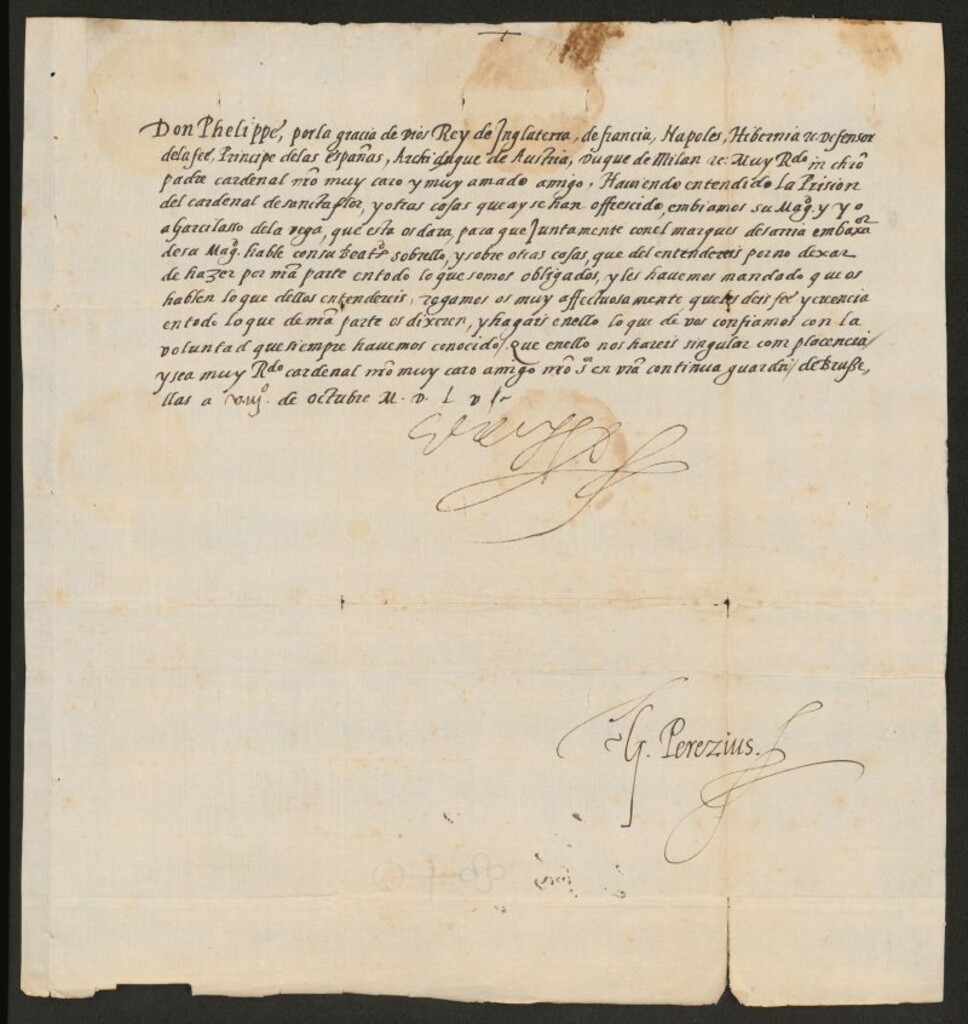 Don Phelippe, por la gracia de dios Rey de Inglaterra, de francia, Napoles, Hibernia &c. Defensor
dela fee, Principe delas españas, Archiduque de Austria, Duque de Milan &c: Muy Rdo in chro
padre cardenal nro muy caro y muy amado amigo, Haviendo entendido La Prision
del cardenal de sancta flor, y otras cosas que ay se han offrescido, embiamos su Magd. y yo
a Garcilasso dela vega, que esta os dara, para que Juntamente con el marques de sarria embaxor
de su Magd. hable con su Beatd sobrello, y sobre otras cosas, que del entendereis por no dexar
de hazer por nra parte en todo lo que somos obligados, y les havemos mandado que os
hablen lo que dellos entendereis, rogamos os muy affectuosamente que les deis fee y creencia
en todo lo que de nra parte os dixeren, y hagais enello lo que de vos confiamos con la
voluntad que siempre havemos conocido/ Que enello nos hareis singular complacencia/
y sea muy Rdo cardenal nro muy caro amigo nro Sr en vra continua guardia/ de Brusse,
llas a viijo. de octubre M. D. L v
G. Perezius.